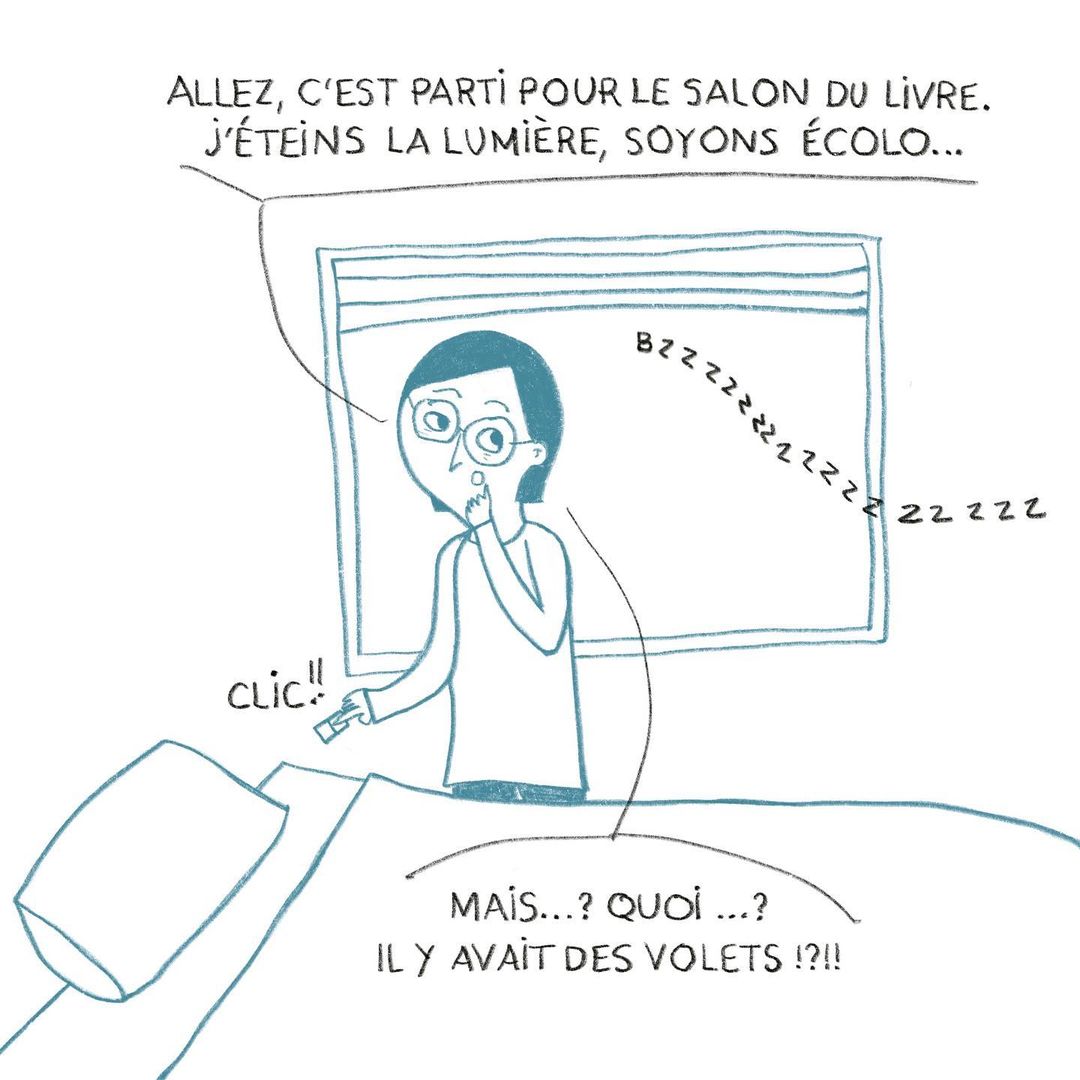 ALLEZ, C'EST PARTI POUR LE SALON DU LIVRE.
J'ÉTEINS LA LUMIÈRE, SOYONS ÉCOLO...
BZZZZZZZZZZZZZZZZZZZZ
CLIC!!
MAIS...? QUOI ...?
IL Y AVAIT DES VOLETS !?!!